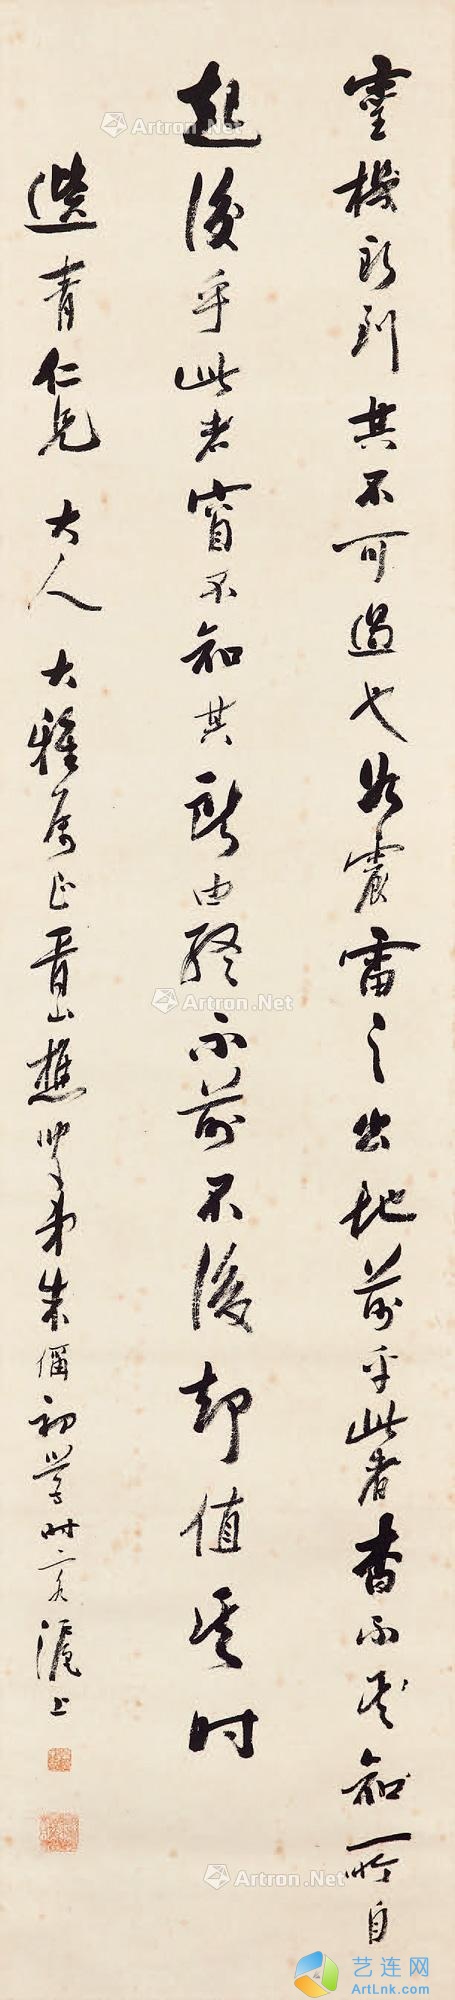 靈機所到其不可遏也如震雷之出地前乎此者杳不知所自
起後乎此者窅不知其所由終不前不後却值其時
選青仁兄大人大雅属正晋山樵叟弟朱偁初学时客滬上
Artron.Net
Artron.Net
Artron.Net
艺连网
ArtLnk.com